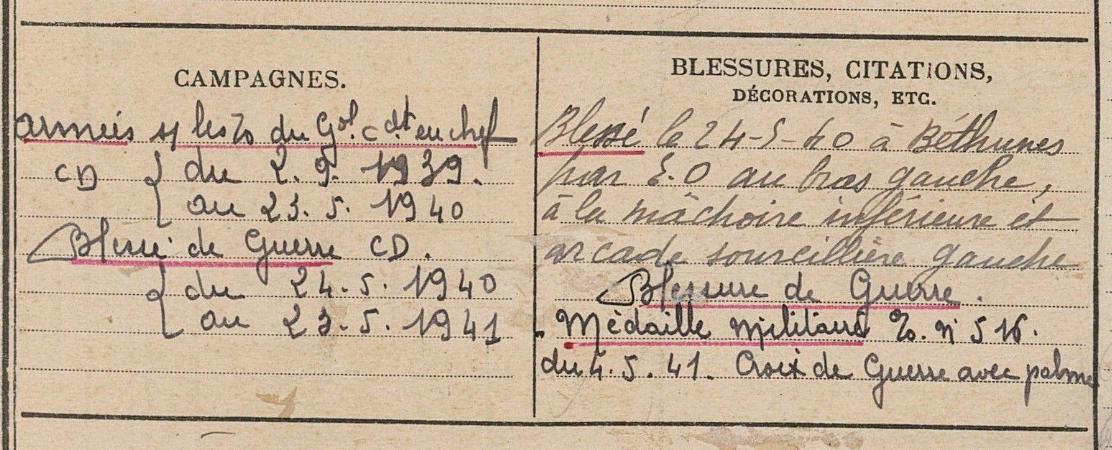 CAMPAGNES.
armées s/ les Zo du Gal. Cdt en chef
CD { du 2.9.1939.
au 23.5.1940
Blessé de Guerre CD.
{ du 24.5.1940
au 23.5.1941
BLESSURES, CITATIONS,
DÉCORATIONS, ETC.
Blessé le 24-5-40 à Béthunes
par E.O au bras gauche,
à la mâchoire inférieure et
arcade sourcillière gauche
Blessure de Guerre.
Médaille militaire n° 516.
du 4.5.41. Croix de Guerre avec palme